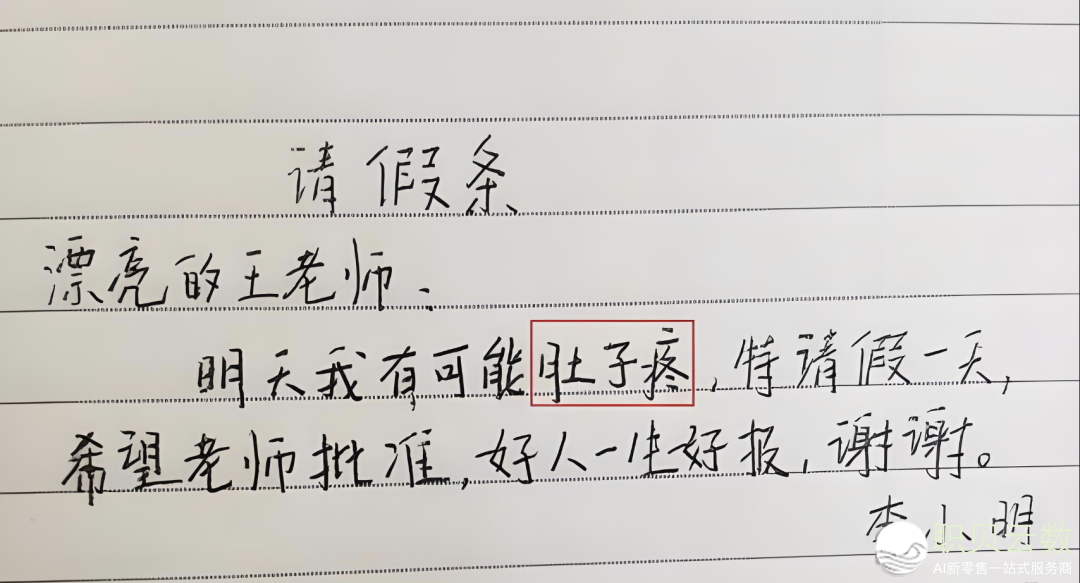 请假条
漂亮的王老师：
明天我有可能肚子疼，特请假一天，
希望老师批准，好人一生好报，谢谢。
李小明
AI新零售一站式服务商